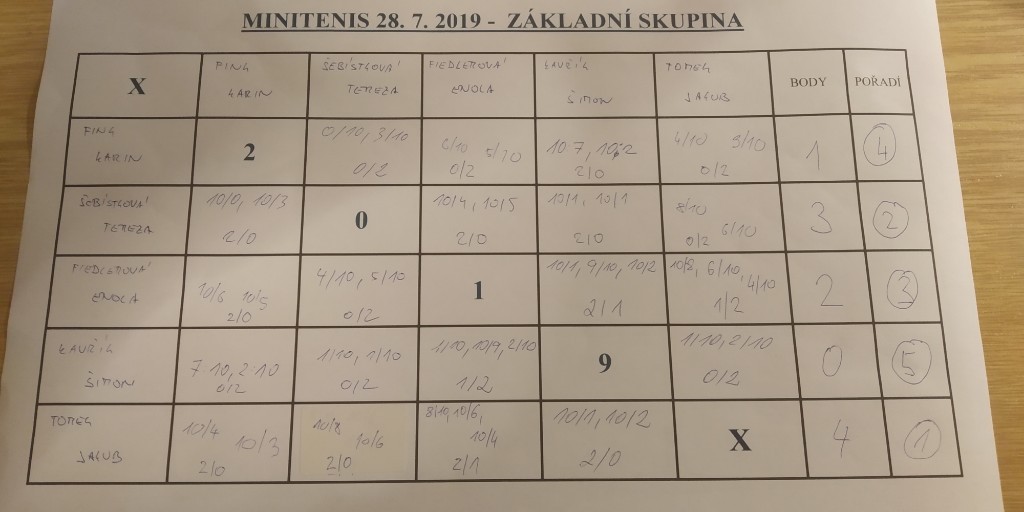 MINITENIS 28. 7. 2019 - ZÁKLADNÍ SKUPINA
X
FINK
KARIN
ŠEBÍSTKOVÁ
TEREZA
FIEDLEROVÁ
ENOLA
KAVŘÍK
ŠIMON
TOMEK
JAKUB
BODY
POŘADÍ
FINK
KARIN
2
0/10, 3/10
0/2
6/10 5/10
0/2
10:7, 10:2
2/0
4/10 3/10
0/2
1
4
ŠEBÍSTKOVÁ
TEREZA
10/0, 10/3
2/0
0
10/4, 10/5
2/0
10/1, 10/1
2/0
8/10
6/10
0/2
3
2
FIEDLEROVÁ
ENOLA
10/6 10/5
2/0
4/10, 5/10
0/2
1
10/1, 9/10, 10/2
2/1
10/8, 6/10,
4/10
1/2
2
3
KAVŘÍK
ŠIMON
7:10, 2:10
0/2
1/10, 1/10
0/2
1/10, 10/9, 2/10
1/2
9
1/10, 2/10
0/2
0
5
TOMEK
JAKUB
10/4
10/3
2/0
10/8
10/6
2/0
8/10, 10/6,
10/4
2/1
10/1, 10/2
2/0
X
4
1